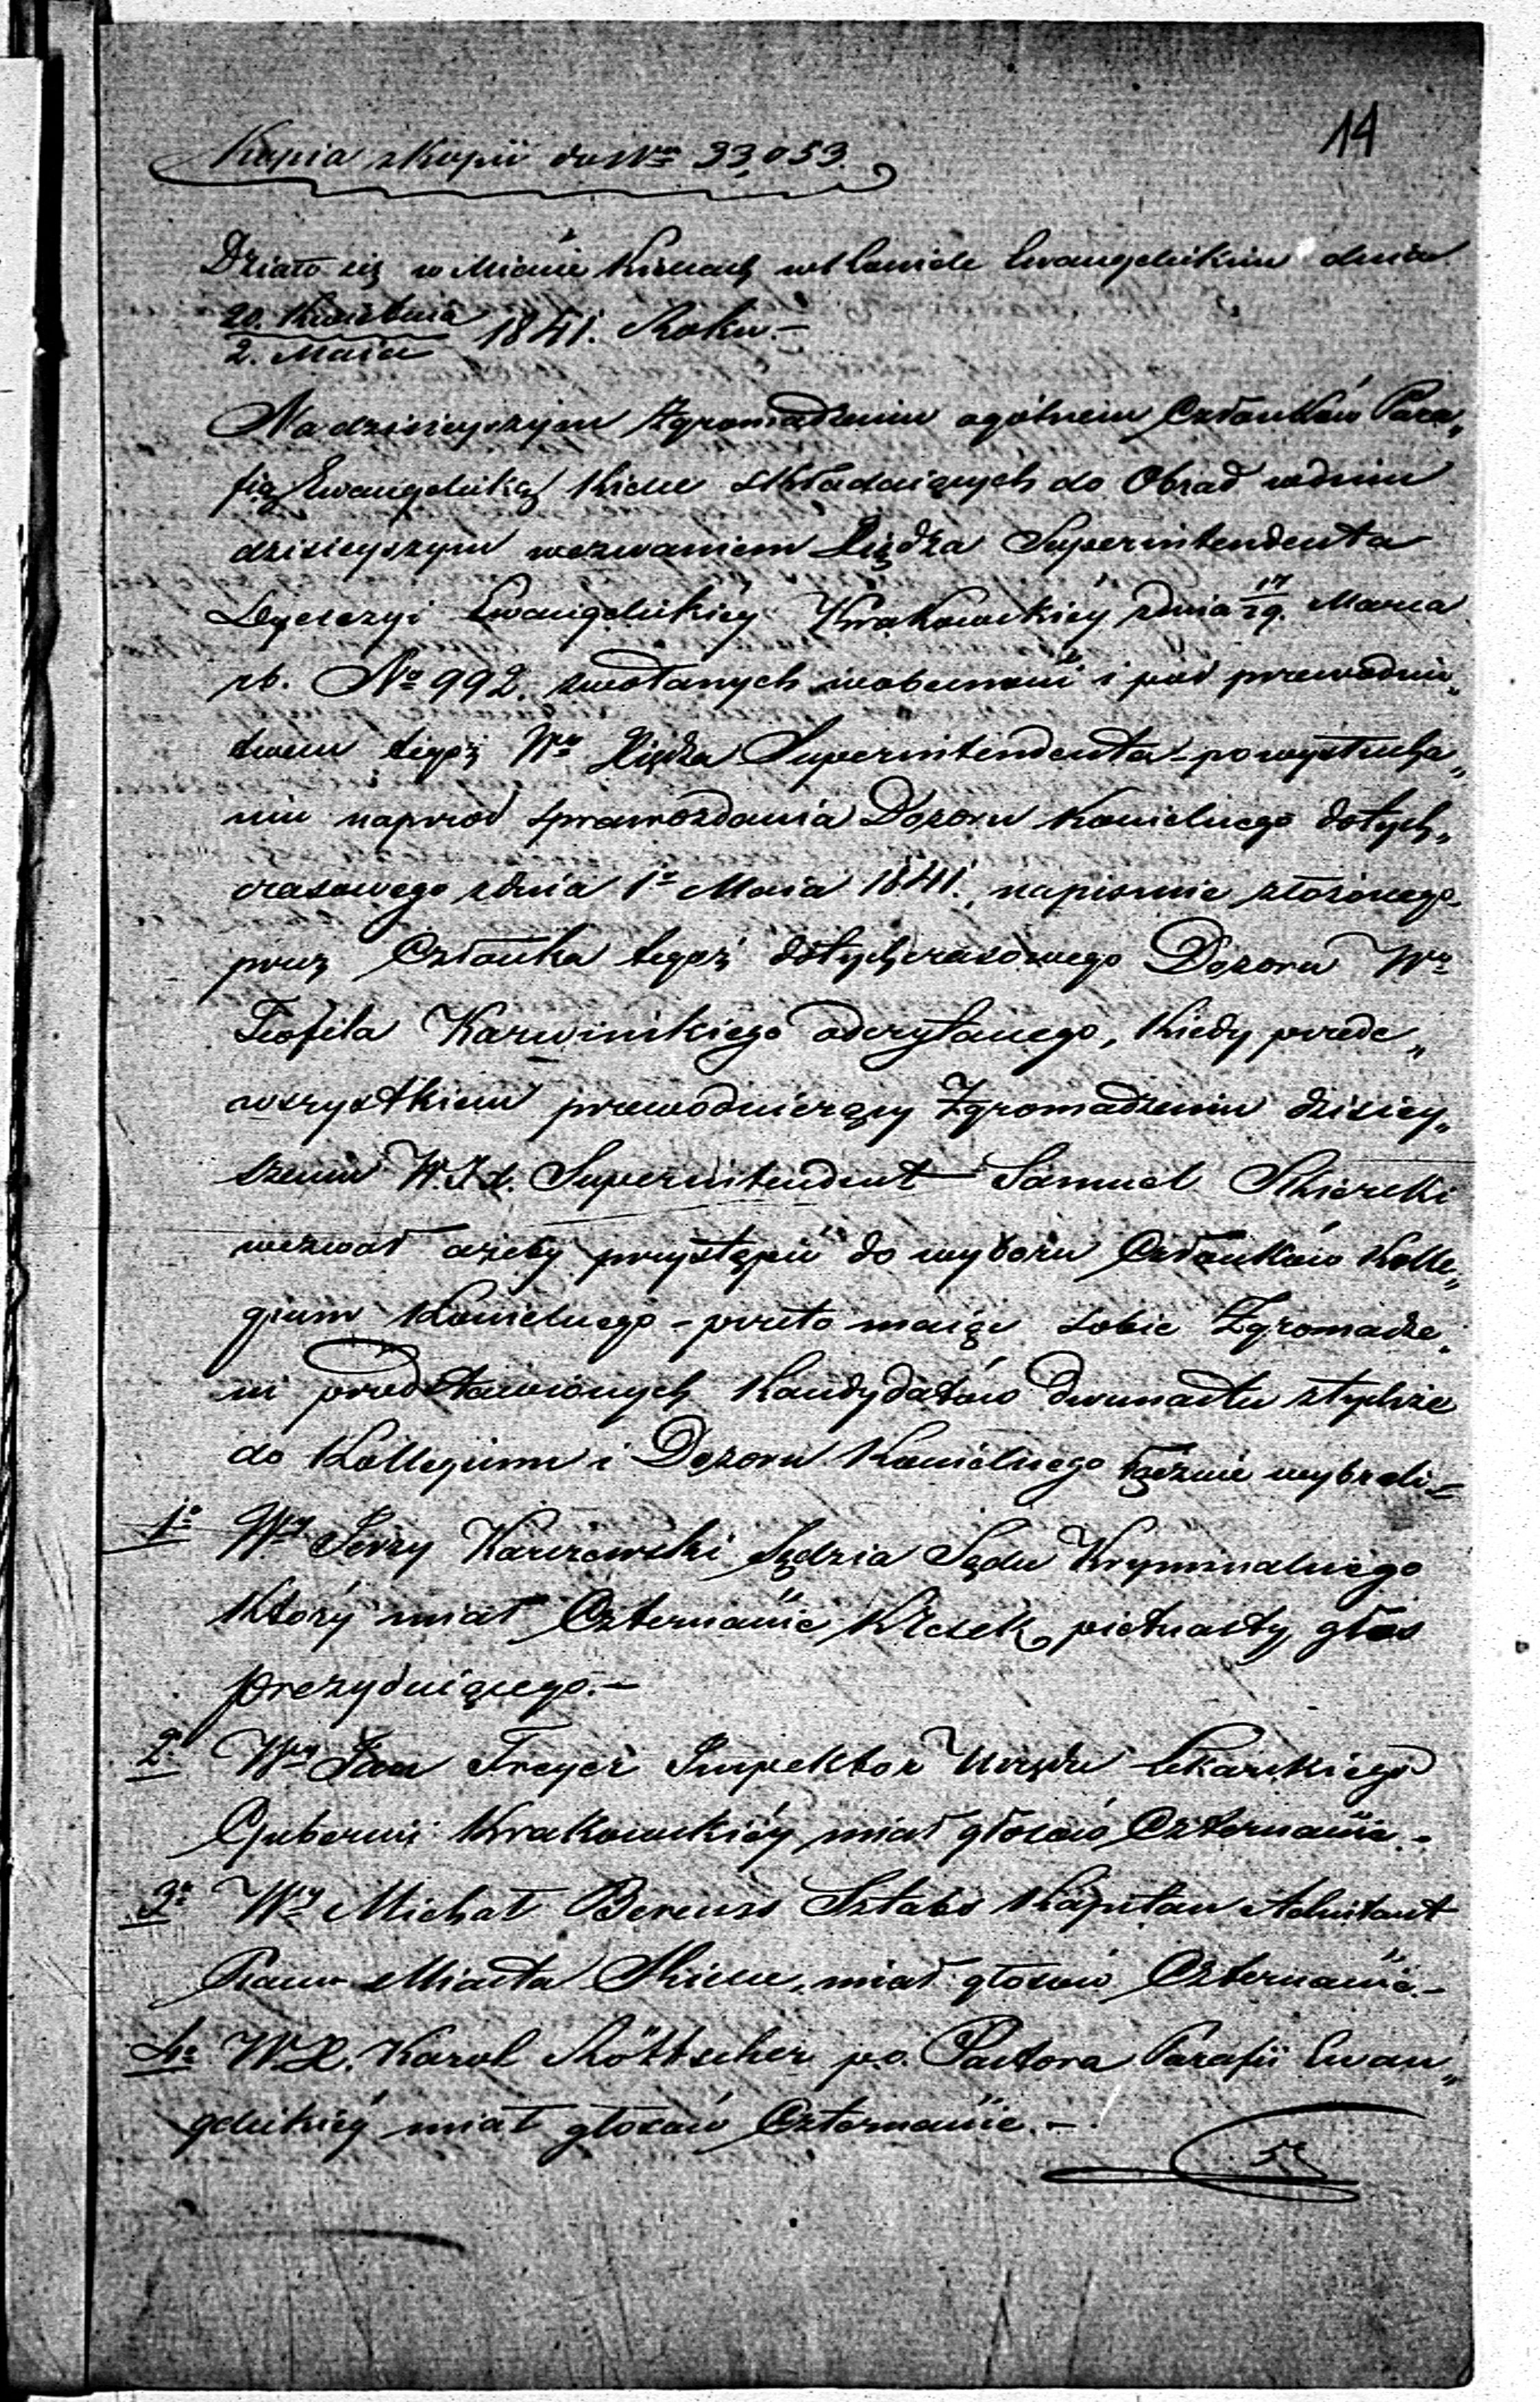 14
Kopia z Kopii do Nru 33,053.
Działo się w Mieście Kielcach w Kościele Ewangelickim dnia
20. Kwietnia / 2. Maja 1841. Roku.—
Na dzisieyszym Zgromadzeniu ogólnem Członków Para„
fią Ewangelicką Kielce składaiących do Obrad w dniu
dzisieyszym wezwaniem Xiędza Superintendenta
Dyecezyi Ewangelickiéy Krakowskiéy z dnia 17/29. Marca
rb. No 992. zwołanych w obecności i pod przewodnic„
twem tegoż Wo Xiędza Superintendenta – po wysłucha„
niu naprzód sprawozdania Dozoru Kościelnego dotych„
czasowego z dnia 1o Maia 1841. na piśmie złożonego
przez Członka tegoż dotychczasowego Dozoru Wo
Teofila Karwinskiego odczytanego, kiedy przede„
wszystkiem przewodniczący Zgromadzeniu dzisiey„
szemu W. Superintendent Samuel
wezwał ażeby przystąpić do wyboru Członków Kolle„
gium Kościelnego – przeto maiąc sobie Zgromadze„
ni przedstawionych Kandydatów dwunastu z tychże
do Kollegium i Dozoru Kościelnego łącznie wybrali –
1o Wny Jerzy Karczewski Sędzia Sądu Kryminalnego
który miał Czternaście Kresek, piętnasty głos
prezyduiącego.—
2o Wny Jan Freyer Inspektor Urzędu Lekarskiego
Gubernii Krakowskiéy miał głosów Czternaście.–
3o Wny Michał Berens Sztabs Kapitan Adiutant
Placu Miasta Kielce, miał głosów Czternaście.–
4o W.X. Karol p.o. Pastora Parafii Ewan„
gelickiéy miał głosów Czternaście.–